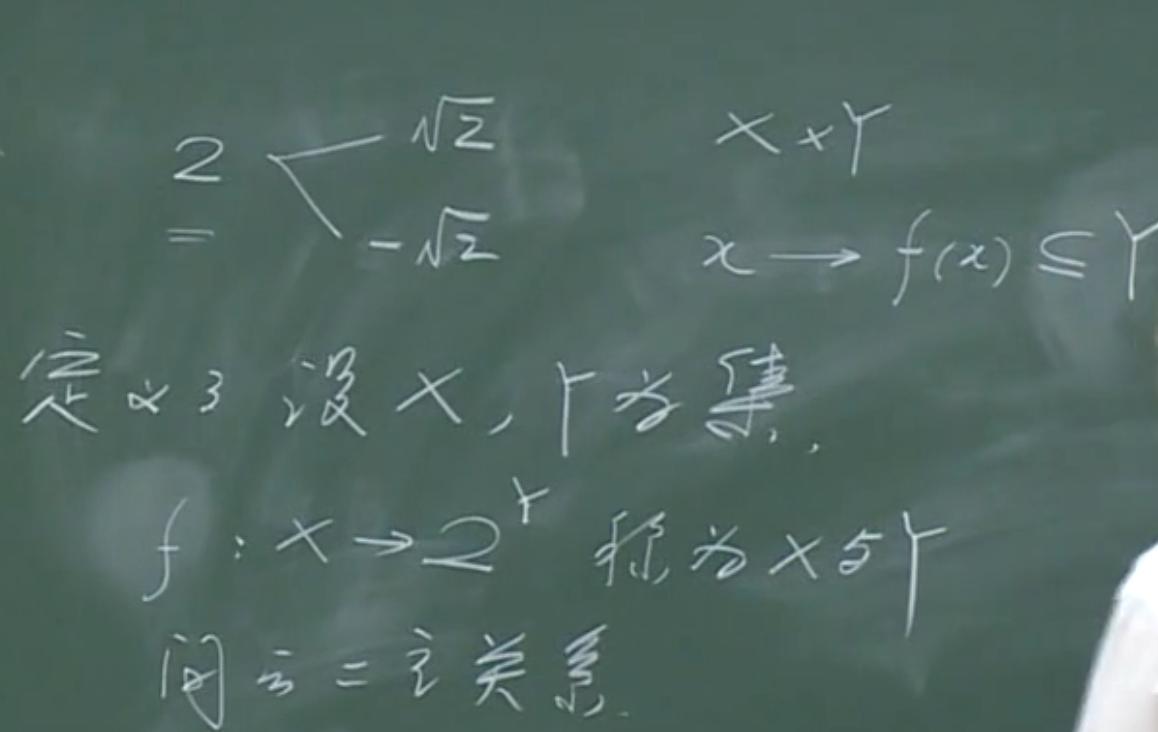 2 √2 X×Y
= -√2 x → f(x) ⊆ Y
定义3 设X,Y为集,
f:X→2^Y 称为X与Y
间的二元关系.